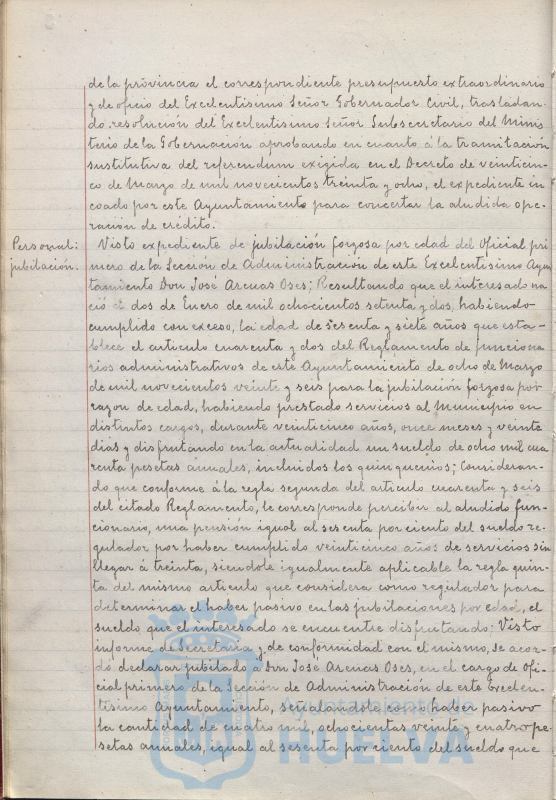 de la próvincia el correspondiente presupuesto extraordinario
y de oficio del Excelentisimo Señor Gobernador Civil, trasladan-
do resolución del Excelentisimo Señor Subsecretario del Minis-
terio de la Gobernación aprobando en cuanto á la tramitación
sustitutiva del referendum exigida en el Decreto de veinticin-
co de Marzo de mil novecientos treinta y ocho, el expediente in-
coado por este Ayuntamiento para concertar la aludida ope-
ración de crédito.
Personal: jubilación.
Visto expediente de jubilación forzosa por edad del Oficial pri-
mero de la Sección de Administración de este Excelentisimo Ayun-
tamiento Don José Arenas Oses; Resultando que el interesado na-
ció el dos de Enero de mil ochocientos setenta y dos, habiendo
cumplido con exceso, la edad de sesenta y siete años que esta-
blece el articulo cuarenta y dos del Reglamento de funciona-
rios administrativos de este Ayuntamiento de ocho de Marzo
de mil novecientos veinte y seis para la jubilación forzosa por
razon de edad, habiendo prestado servicios al Municipio en
distintos cargos, durante veinticinco años, once meses y veinte
dias y disfrutando en la actualidad un sueldo de ocho mil cua
renta pesetas anuales, incluidos los quinquenios; Consideran-
do que conforme á la regla segunda del articulo cuarenta y seis
del citado Reglamento, le corresponde percibir al aludido fun-
cionario, una pensión igual al sesenta por ciento del sueldo re-
gulador por haber cumplido veinticinco años de servicios sin
llegar á treinta, siendole igualmente aplicable la regla quin-
ta del mismo articulo que considera como regulador para
determinar el haber pasivo en las jubilaciones por edad, el
sueldo que el interesado se encuentre disfrutando; Visto
informe de Secretaria y de conformidad con el mismo, se acor-
dó declarar jubilado á Don José Arenas Oses, en el cargo de Ofi-
cial primero de la Sección de Administración de este Excelen-
tisimo Ayuntamiento, señalandole como haber pasivo
la cantidad de cuatro mil, ochocientas veinte y cuatro pe-
setas anuales, igual al sesenta por ciento del sueldo que
Ayuntamiento de
HUELVA